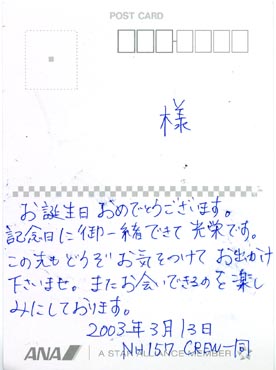 POST CARD
様
お誕生日おめでとうございます。
記念日に御一緒できて光栄です。
この先もどうぞお気をつけてお出かけ
下さいませ。またお会いできるのを楽し
みにしております。
2003年3月13日
NH157 CREW一同
ANA
A STAR ALLIANCE MEMBER